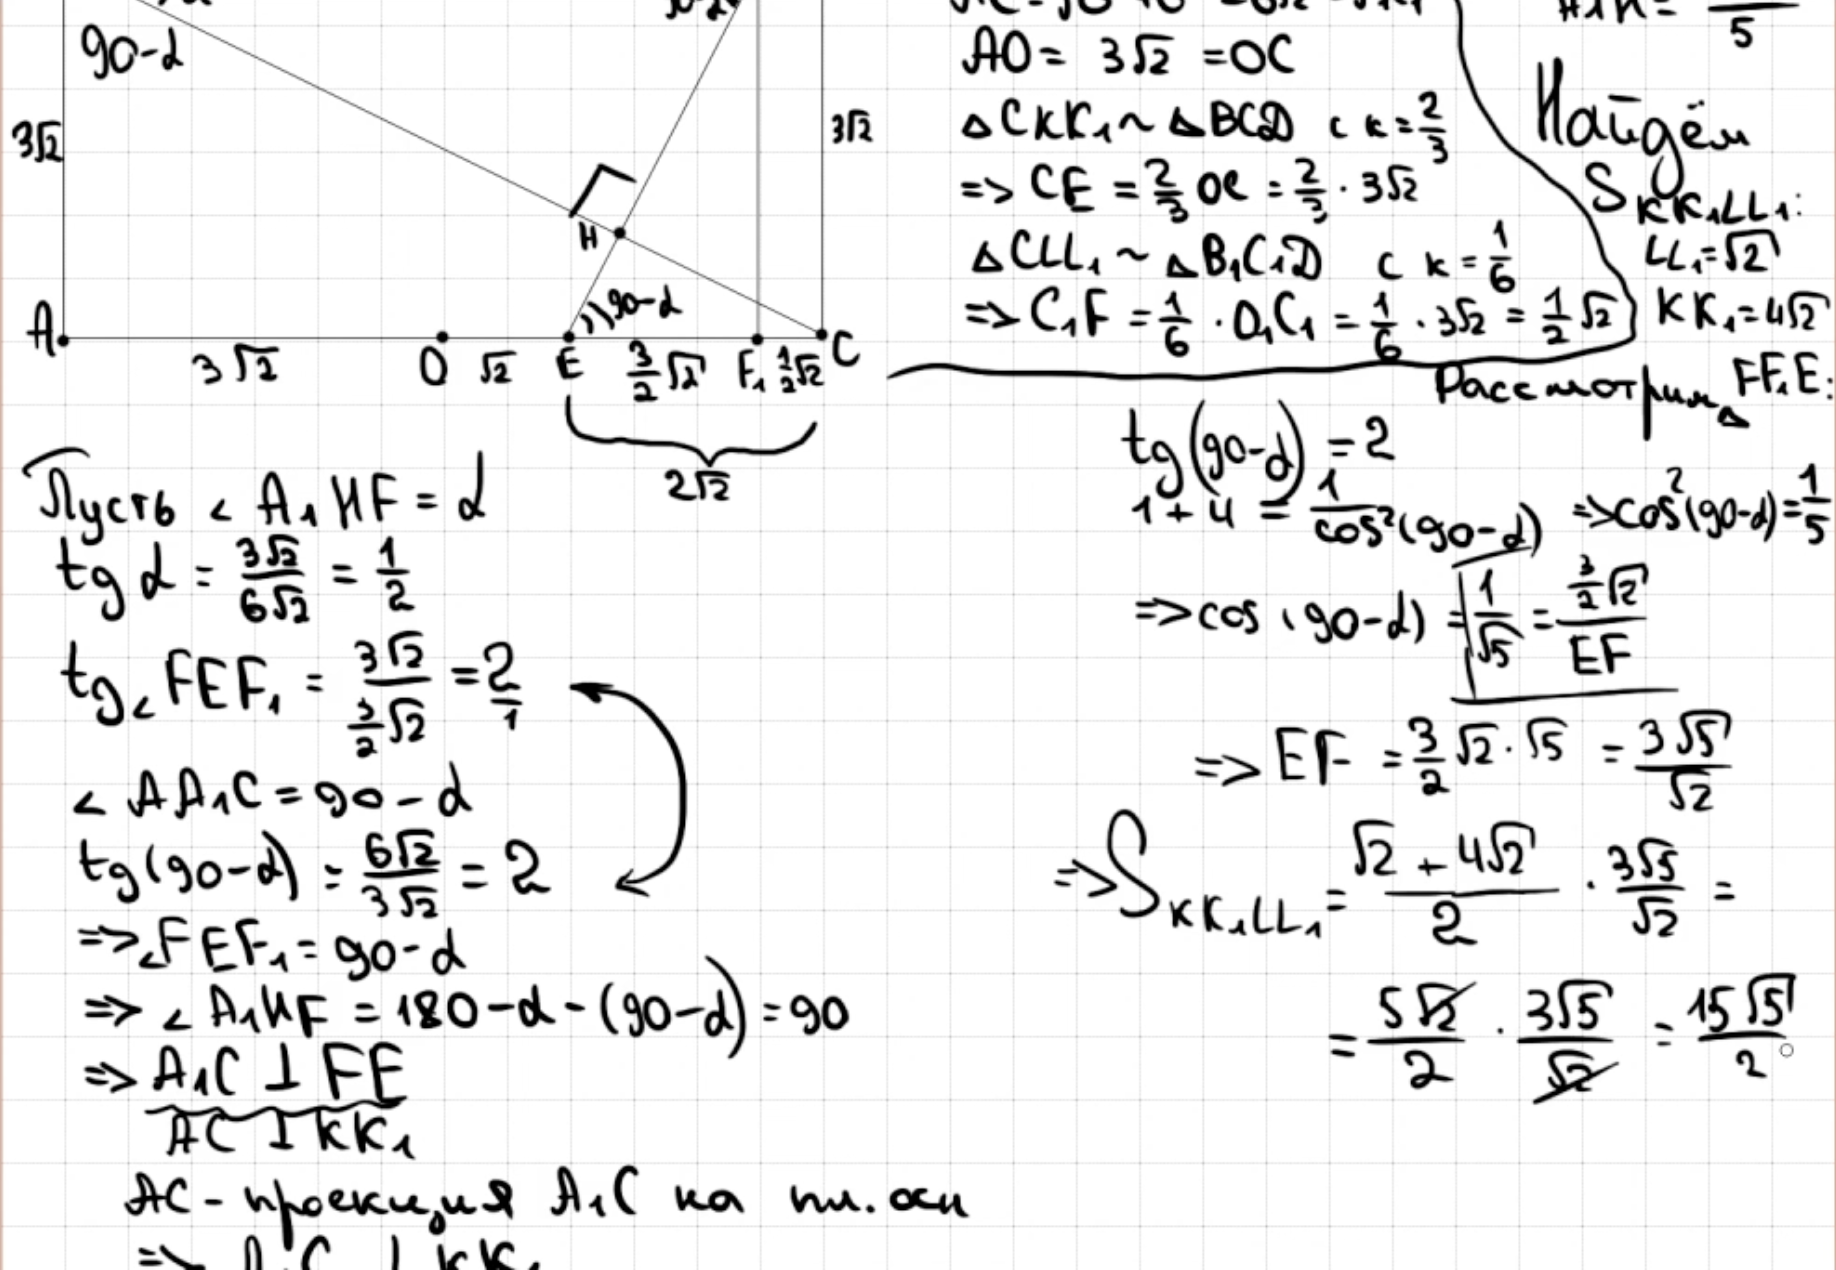 90-α
3√2
H
90-α
A
3√2
O
√2
E
3/2 √2
F₁
1/2 √2
C
2√2
3√2
AO = 3√2 = OC
△CKK₁ ~ △BCD с k = 2/3
=> CE = 2/3 OC = 2/3 · 3√2
△CLL₁ ~ △B₁C₁D с k = 1/6
=> C₁F = 1/6 · O₁C₁ = 1/6 · 3√2 = 1/2 √2
5
Найдём
S KK₁LL₁:
LL₁ = √2
KK₁ = 4√2
Рассмотрим △ FF₁E:
Пусть < A₁HF = α
tg α = 3√2/6√2 = 1/2
tg < FEF₁ = 3√2/(3/2 √2) = 2/1
< AA₁C = 90 - α
tg(90-α) = 6√2/3√2 = 2
=> < FEF₁ = 90-α
=> < A₁HF = 180 - α - (90-α) = 90
=> A₁C ⊥ FE
AC ⊥ KK₁
AC - проекция A₁C на пл. осн
=> A₁C ⊥ KK₁
tg(90-α) = 2
1+4 = 1/cos²(90-α) => cos²(90-α) = 1/5
=> cos(90-α) = 1/√5 = (3/2 √2)/EF
=> EF = 3/2 √2 · √5 = 3√5/√2
=> S KK₁LL₁ = (√2 + 4√2)/2 · 3√5/√2 =
= 5√2/2 · 3√5/√2 = 15√5/2